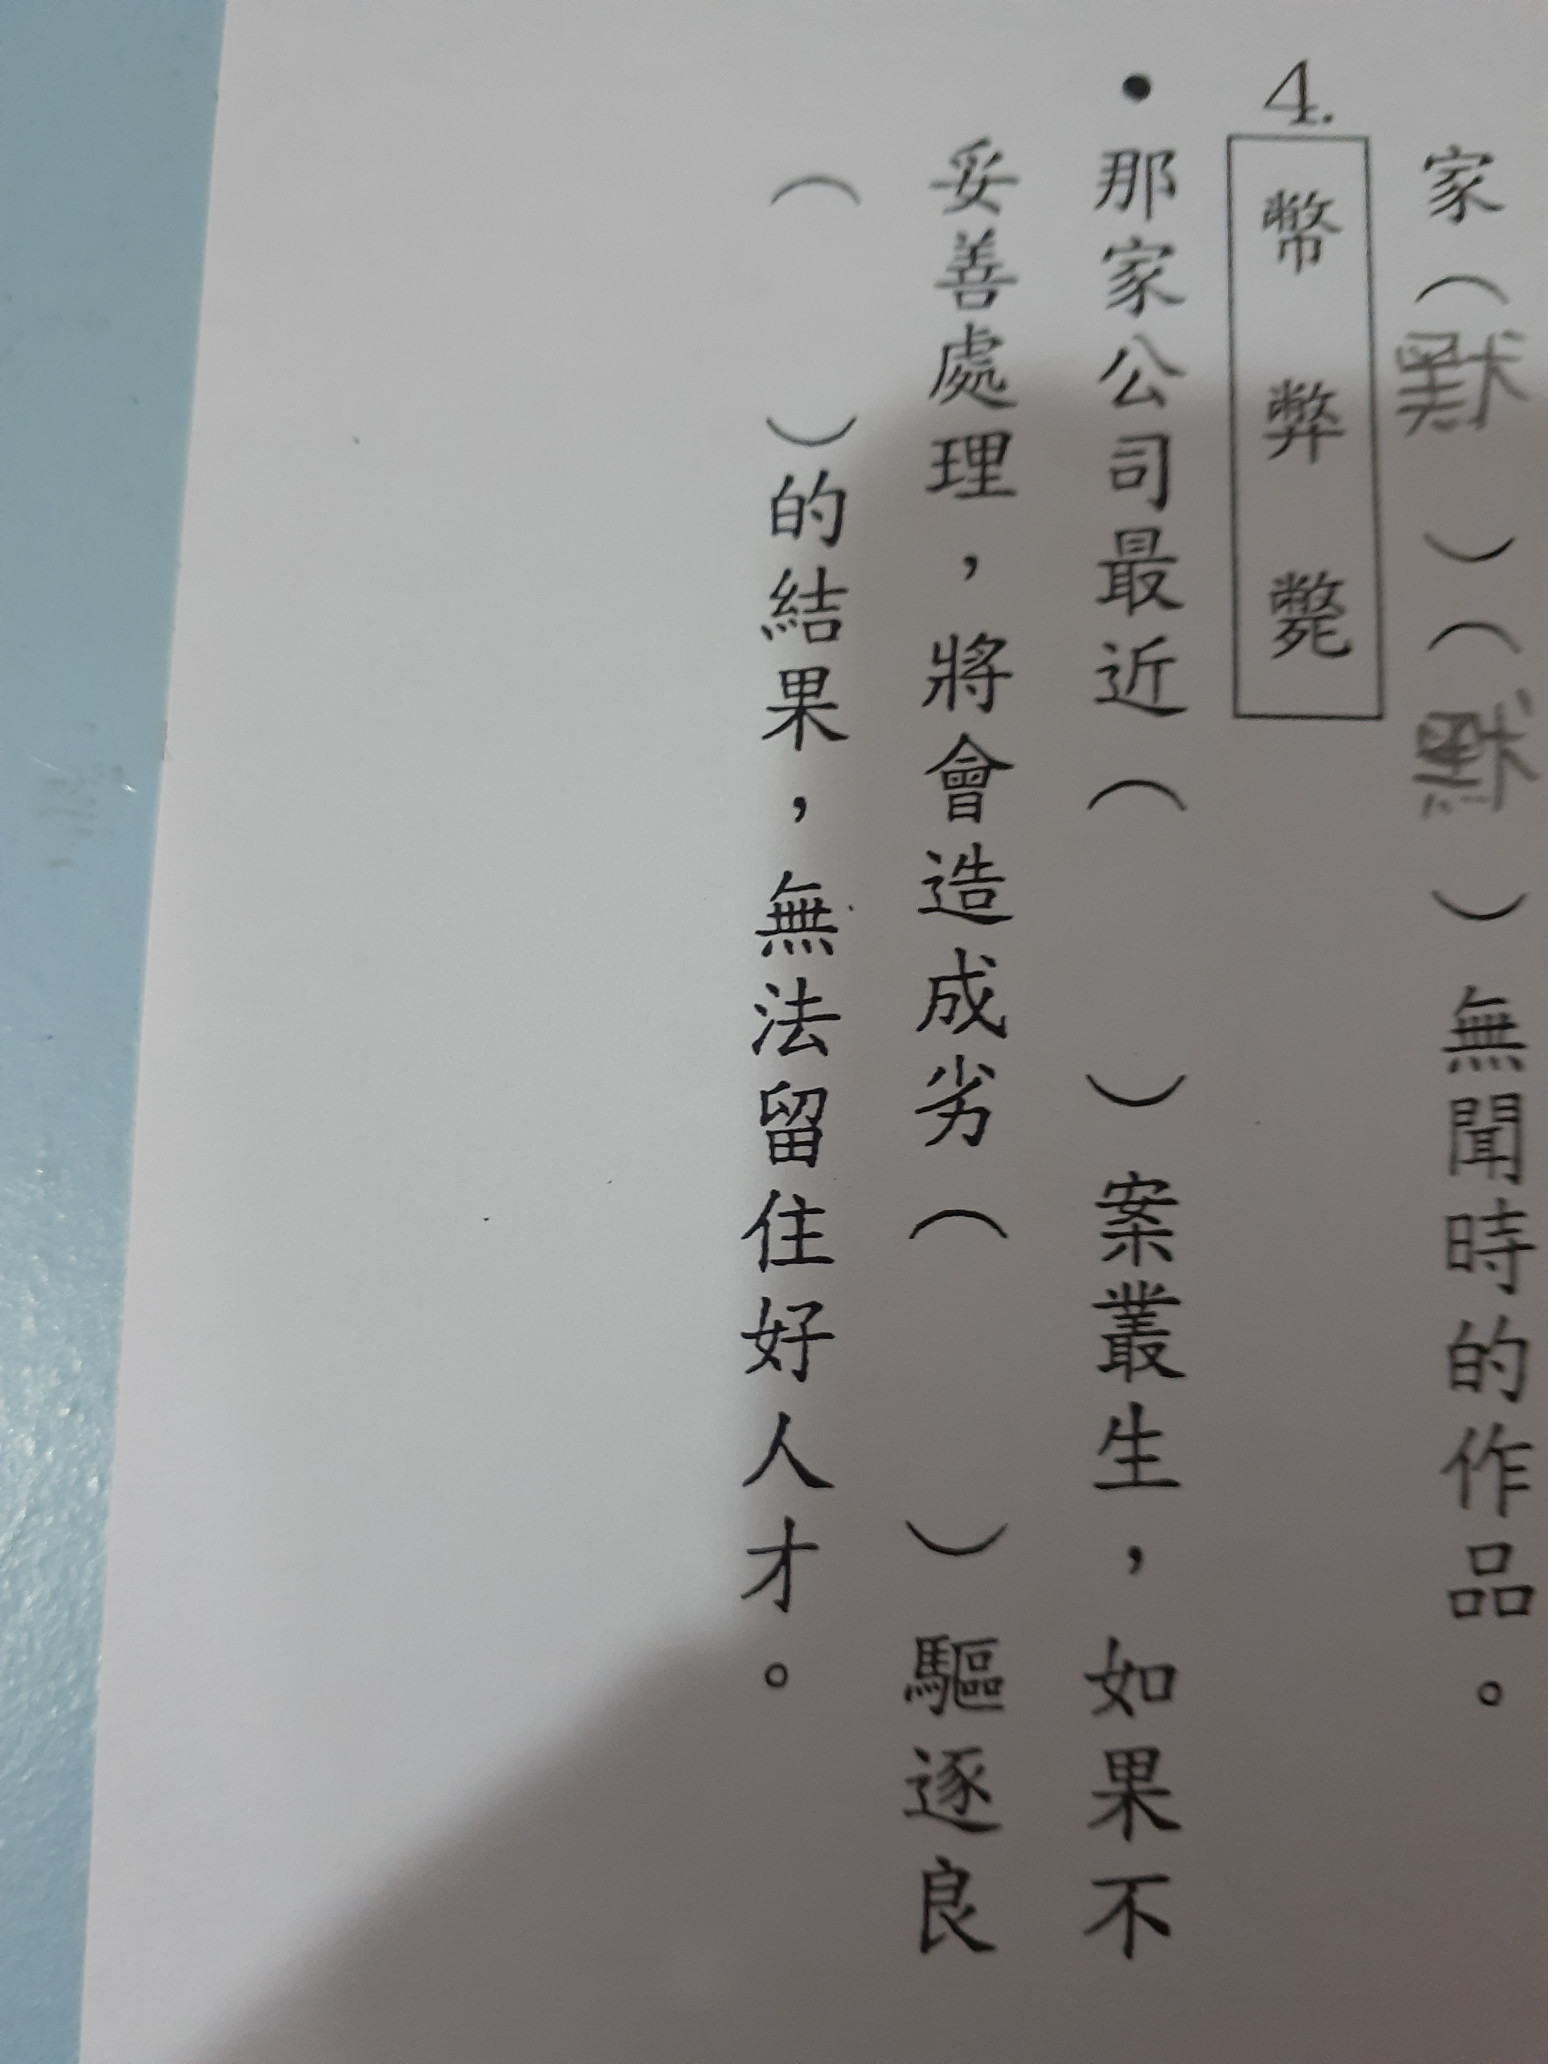 家（默）（默）無聞時的作品。
4. 幣 弊 斃
•那家公司最近（　　）案叢生，如果不
妥善處理，將會造成劣（　　）驅逐良
（　　）的結果，無法留住好人才。